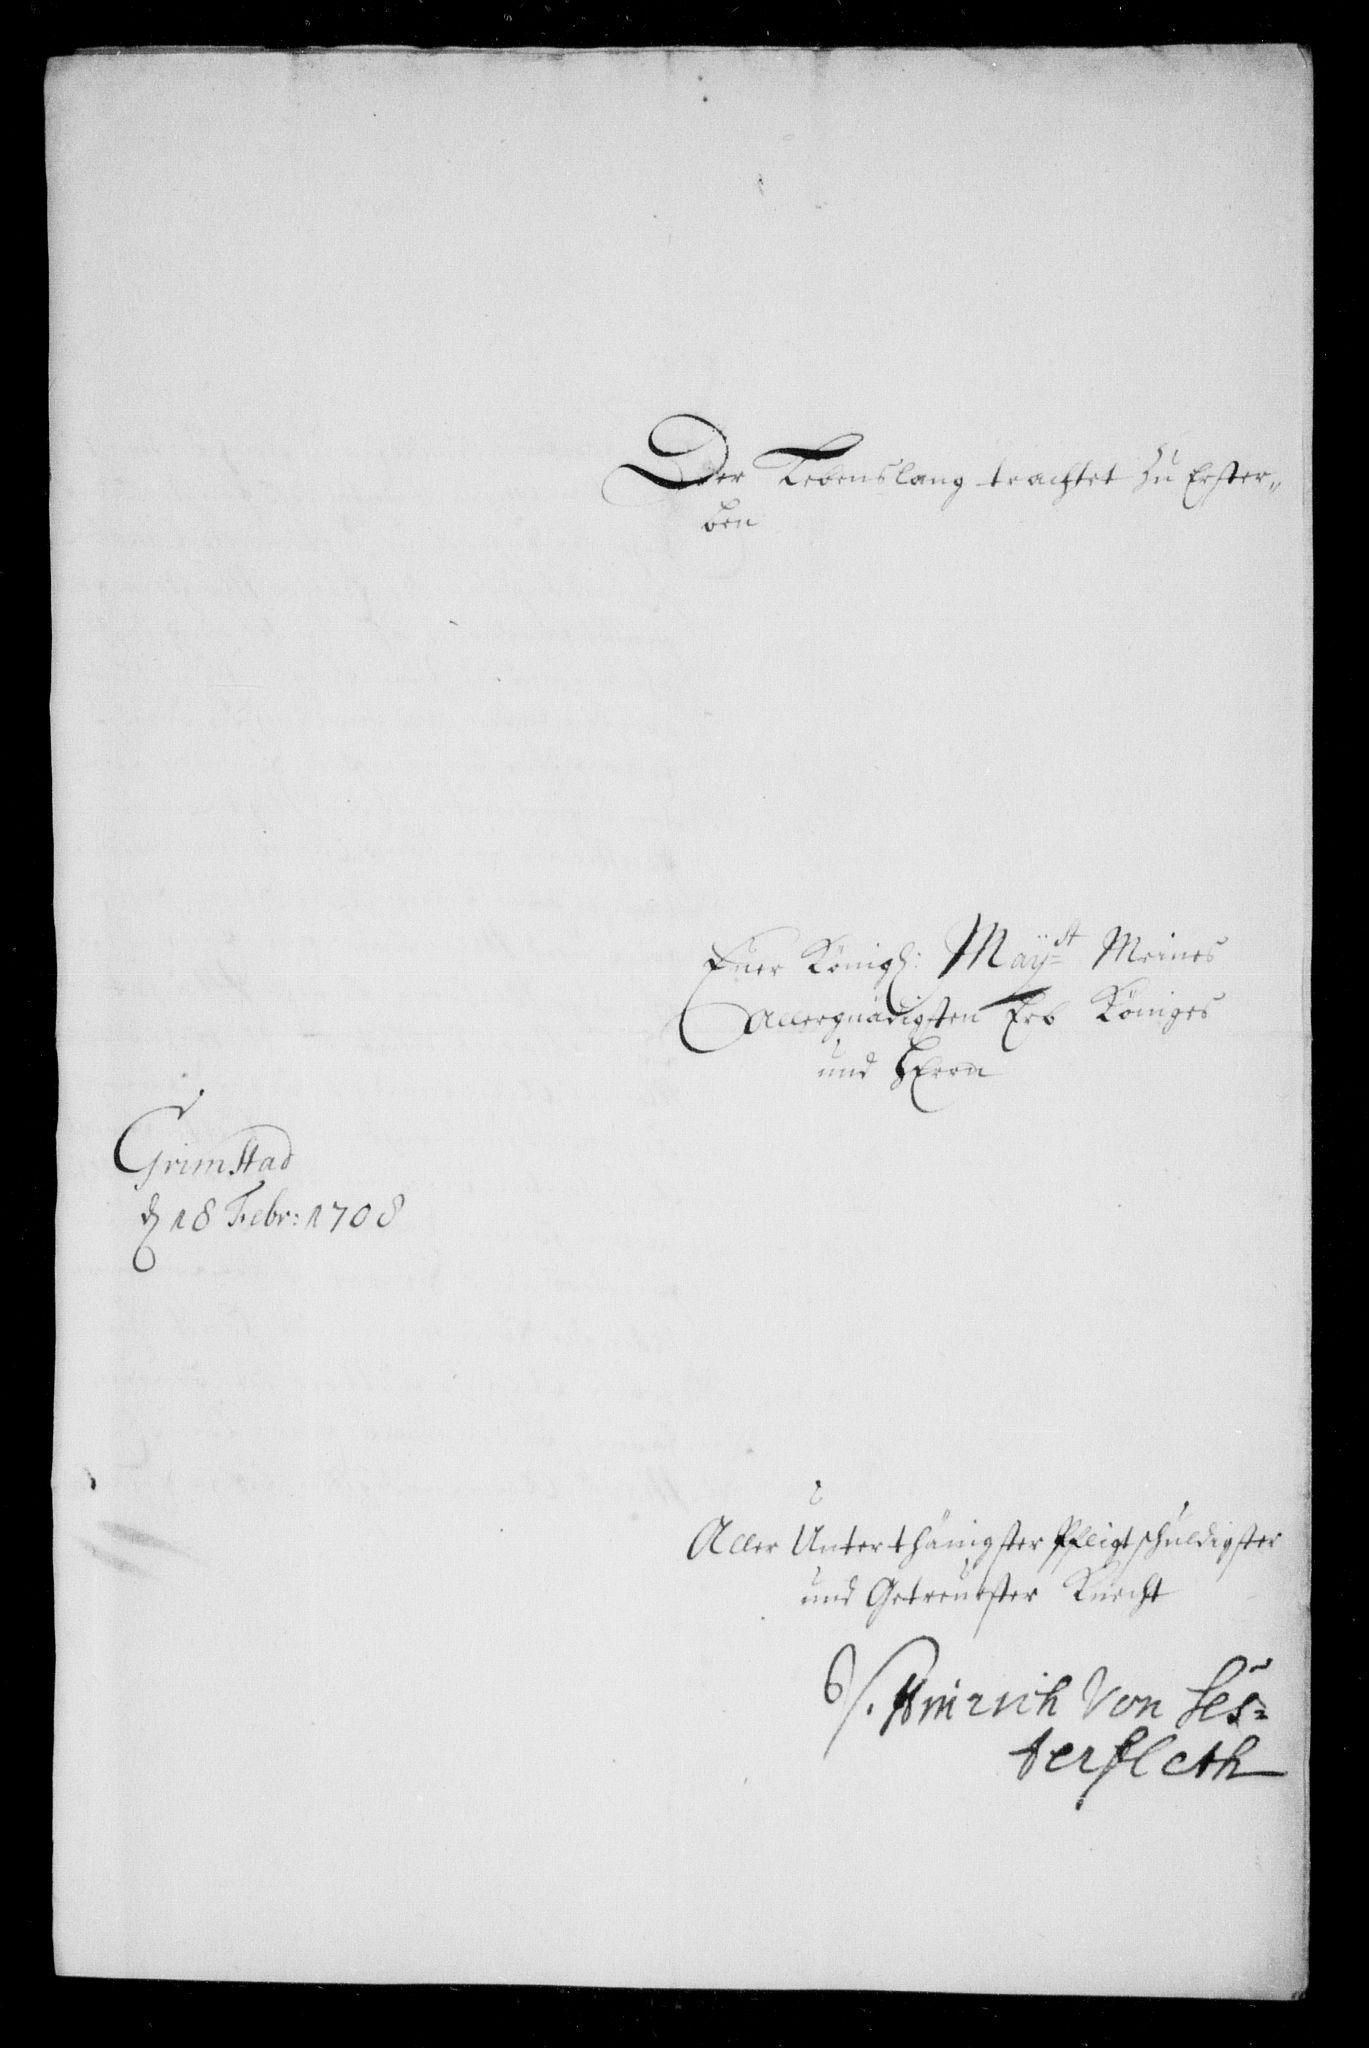 Der Lebenslang trachtet zu Erster„
ben
Euer Königl: Mayst Meines
Allergnädigsten Erb Königes
und HErrn
Grimstad
d 18 Febr: 1708
Aller Unterthänigster Pfligtschuldigster
und Getreuester Knecht
Hinrich Von Ses=
terfleth